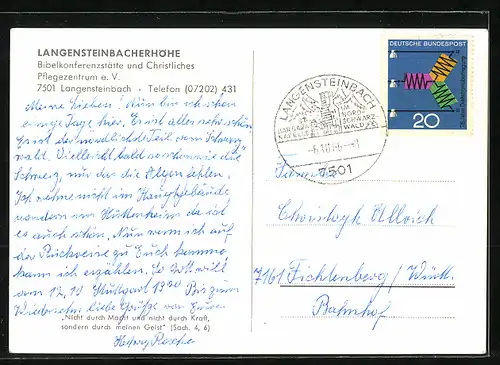 LANGENSTEINBACHERHÖHE
Bibelkonferenzstätte und Christliches
Pflegezentrum e. V.
7501 Langensteinbach - Telefon (07202) 431
Meine Lieben! Nun bin ich schon
einige Tage hier. Erst alles sehr schön
Es ist der nördlichste Teil vom Schwarz-
wald. Vielleicht bald schon
Schweiz, nur das die Alpen fehlen.
Ich wohne nicht im Hauptgebäude
sondern im Hüttenheim da ist
es auch schön. Nun wenn ich auf
der Rückreise zu Euch komme,
kann ich erzählen. So Gott will
vom 12.10 Stuttgart Bis zum
Wiedersehn liebe Grüße von Eurer
"Nicht durch Macht und nicht durch Kraft,
sondern durch meinen Geist" (Sach. 4, 6)
Hedwig
DEUTSCHE BUNDESPOST
20
LANGENSTEINBACH
IM
NÖRDL.
SCHWARZ-
WALD
BARBARA
KAPELLE
7501
Familie
Ullrich
7161 Fichtenberg/Württ.
Bahnhof